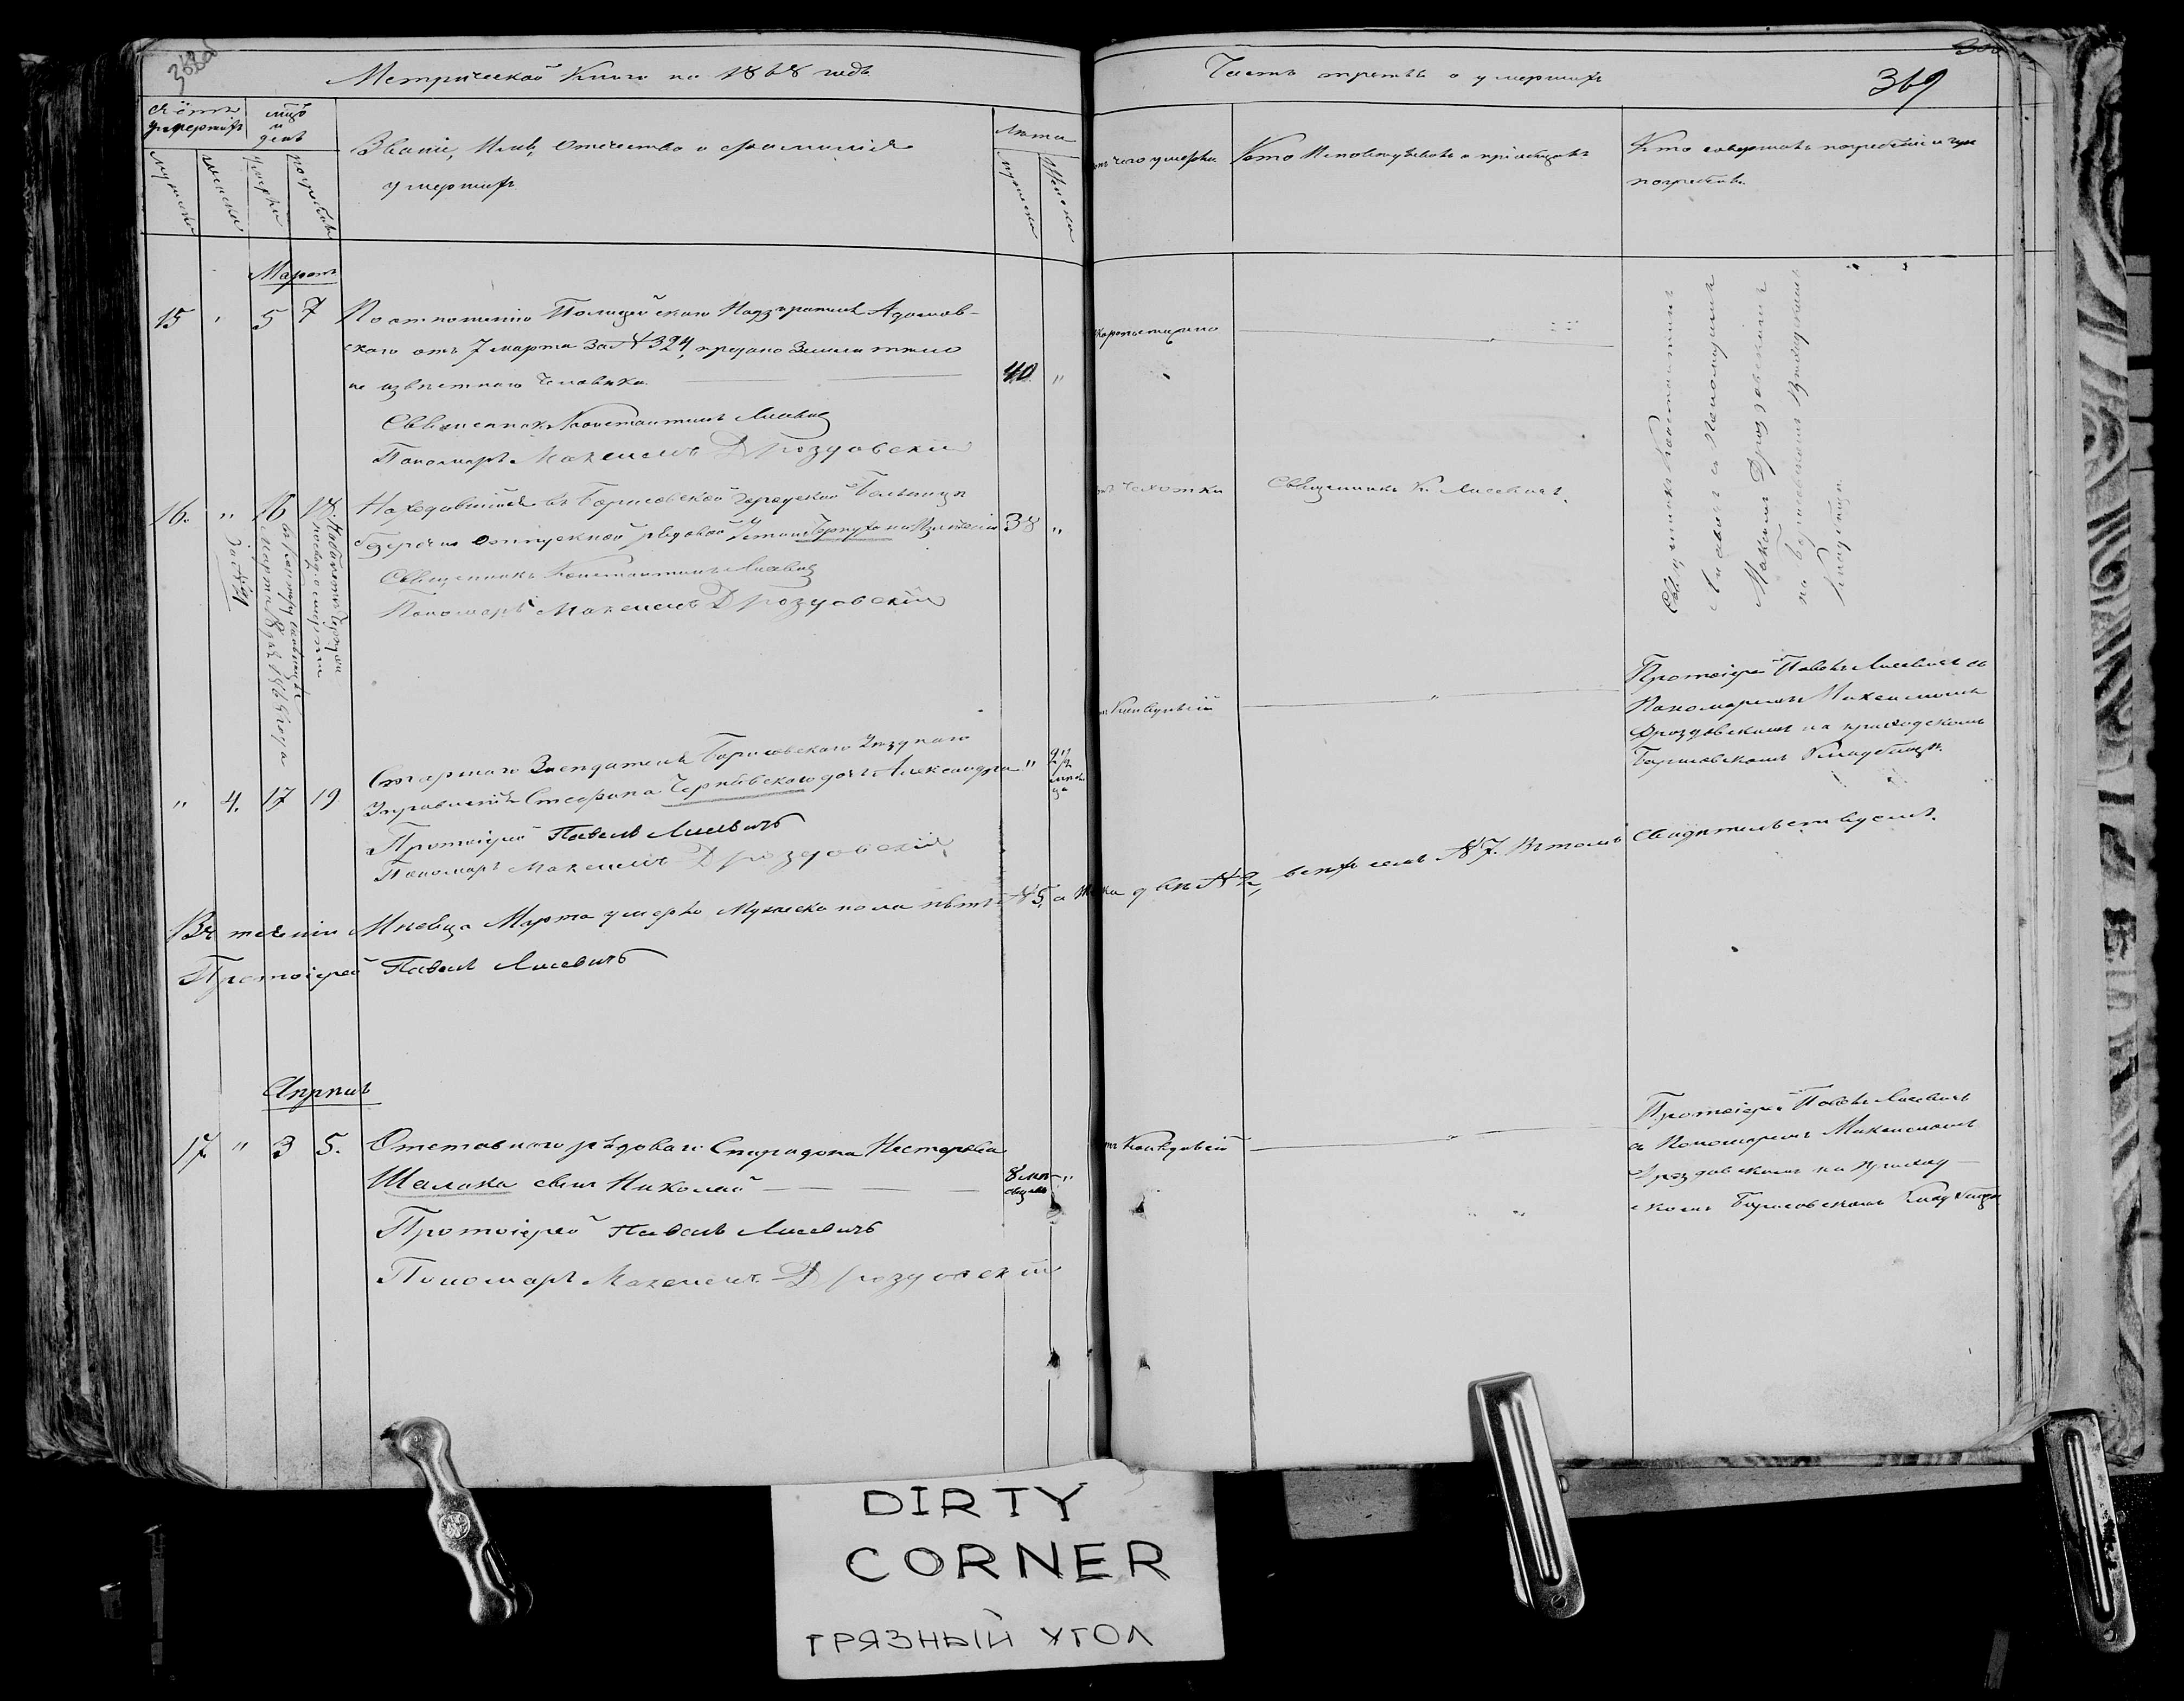 368об
Метрической Книги на 1868 годъ
Часть третья о умершихъ
369
Счётъ умершихъ
мцъ и день
Званіе, Имя, Отечество и фамилія
умершихъ
Лѣта
мужеска
женска
мужеска
женска
отъ чего умерли
Кто Исповѣдывалъ и пріобщалъ
Кто совершалъ погребеніе и гдѣ
погребены
Мартъ
15 5 7 По отношенію Полицейскаго Надзирателя Адамов-
скаго отъ 7 марта за № 324, предано Землѣ тѣло
не извѣстнаго человѣка. 40 "
Священникъ Константинъ Лисевичъ
Пономарь Максимъ Дроздовскій
Священникъ Константинъ
Лисевичъ съ Пономаремъ
Максим. Дроздовскимъ
на Борисовскомъ
Кладбищѣ
16. " 16 18. Находившійся въ Борисовской Городской Больницѣ
отпускной рядовой 38 "
чахотки Священникъ К. Лисевичъ.
за № 21
Священникъ Константинъ Лисевичъ
Пономарь Максимъ Дроздовскій
" 4. 17 19 Старшаго Засѣдателя Борисовскаго Уѣзднаго
Управленія Стефана Чернявскаго дочь Александра "
Протоіерей Павелъ Лисевичъ
Пономарь Максимъ Дроздовскій
Протоіерей Павелъ Лисевичъ съ
Пономаремъ Максимомъ
Дроздовскимъ на приходскомъ
Борисовскомъ Кладбищѣ.
Въ теченіи Мѣсяца Марта умерло Мужеска пола пять № 5, а двѣ № 2, всѣхъ семь № 7. Въ томъ Свидѣтельствуемъ
Протоіерей Павелъ Лисевичъ
Апрѣль
17 " 3 5. Отставнаго рядоваго Спиридона Нестерова
Шалаки сынъ Николай 8 мѣ-
сяцевъ "
Протоіерей Павелъ Лисевичъ
Пономарь Максимъ Дроздовскій
Протоіерей Павелъ Лисевичъ
съ Пономаремъ Максимомъ
Дроздовскимъ на приход-
скомъ Борисовскомъ Кладбищѣ
DIRTY
CORNER
ГРЯЗНЫЙ УГОЛ